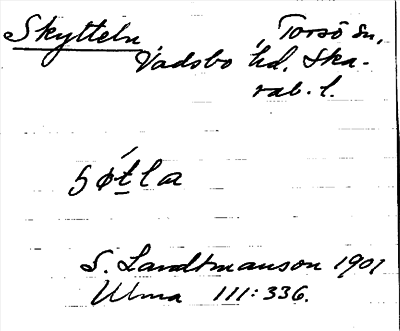 Skytteln, Torsö sn,
Vadsbo hd. Ska-
rab. l.
S. Landtmanson 1901
Ulma III: 336.